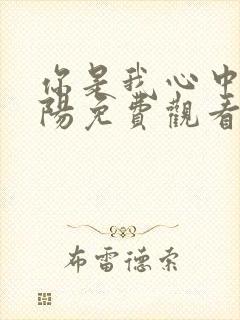 你是我心中
陽免費觀看
布雷德索